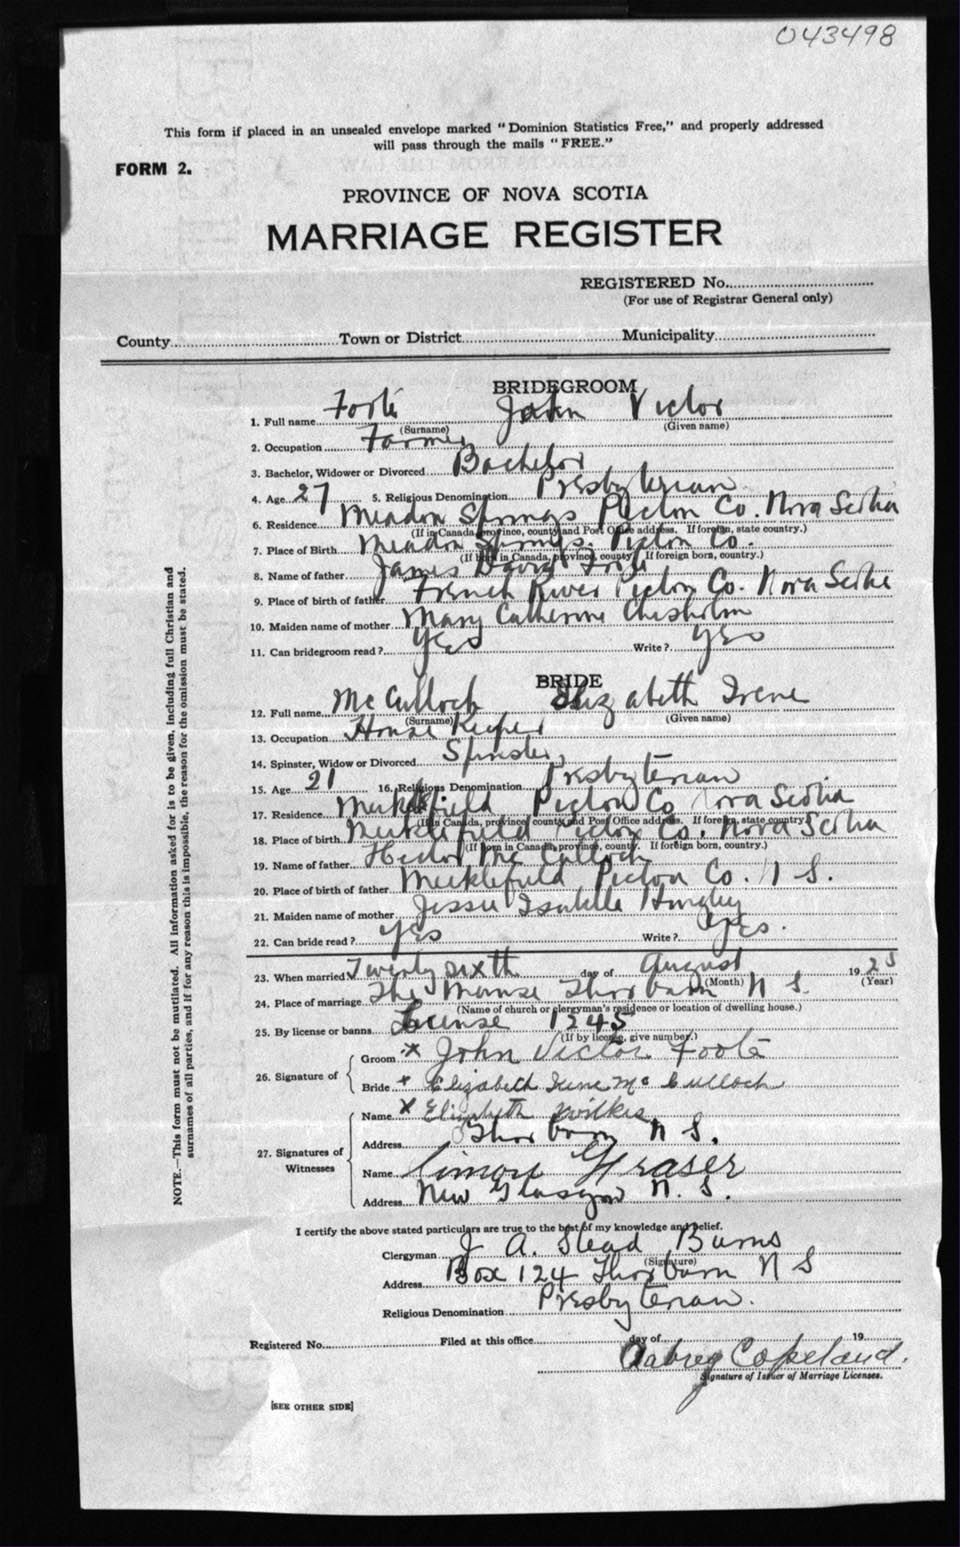 043498
This form if placed in an unsealed envelope marked "Dominion Statistics Free," and properly addressed
will pass through the mails "FREE."
FORM 2.
PROVINCE OF NOVA SCOTIA
MARRIAGE REGISTER
REGISTERED No.
(For use of Registrar General only)
County Town or District Municipality
BRIDEGROOM
1. Full name Foote John Victor
(Surname) (Given name)
2. Occupation Farmer
3. Bachelor, Widower or Divorced Bachelor
4. Age 27 5. Religious Denomination Presbyterian
6. Residence Meadow Springs Pictou Co. Nova Scotia
(If in Canada, province, county and Post Office address. If foreign, state country.)
7. Place of Birth Meadow Springs. Pictou Co.
(If born in Canada, province, county. If foreign born, country.)
8. Name of father James David Foote
9. Place of birth of father French River Pictou Co. Nova Scotia
10. Maiden name of mother Mary Catherine Chisholm
11. Can bridegroom read? yes Write? yes
BRIDE
12. Full name McCulloch Elizabeth Irene
(Surname) (Given name)
13. Occupation House Keeper
14. Spinster, Widow or Divorced Spinster
15. Age 21 16. Religious Denomination Presbyterian
17. Residence Meiklefield Pictou Co Nova Scotia
(If in Canada, province, county and Post Office address. If foreign, state country.)
18. Place of birth Meiklefield Pictou Co. Nova Scotia
(If born in Canada, province, county. If foreign born, country.)
19. Name of father Hector McCulloch
20. Place of birth of father Meiklefield Pictou Co. N S.
21. Maiden name of mother Jessie Isabelle
22. Can bride read? yes Write? yes.
23. When married Twenty sixth day of August 1925
(Month) (Year)
24. Place of marriage The Manse Thorburn N S.
(Name of church or clergyman's residence or location of dwelling house.)
25. By license or banns License 1245
(If by license, give number.)
26. Signature of
Groom x John Victor Foote
Bride x Elizabeth Irene McCulloch
27. Signatures of Witnesses
Name x Elizabeth Wilkes
Address Thorburn N S.
Name Simon Fraser
Address New Glasgow N. S.
I certify the above stated particulars are true to the best of my knowledge and belief.
Clergyman J A. Stead Burns
(Signature)
Address Box 124 Thorburn N S
Religious Denomination Presbyterian.
Registered No. Filed at this office day of 19
Copeland.
Signature of Issuer of Marriage Licenses.
[SEE OTHER SIDE]
NOTE.—This form must not be mutilated. All information asked for is to be given, including full Christian and
surnames of all parties, and if for any reason this is impossible, the reason for the omission must be stated.